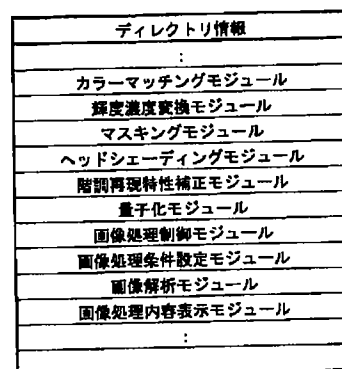 ディレクトリ情報
:
カラーマッチングモジュール
輝度濃度変換モジュール
マスキングモジュール
ヘッドシェーディングモジュール
階調再現特性補正モジュール
量子化モジュール
画像処理制御モジュール
画像処理条件設定モジュール
画像解析モジュール
画像処理内容表示モジュール
: